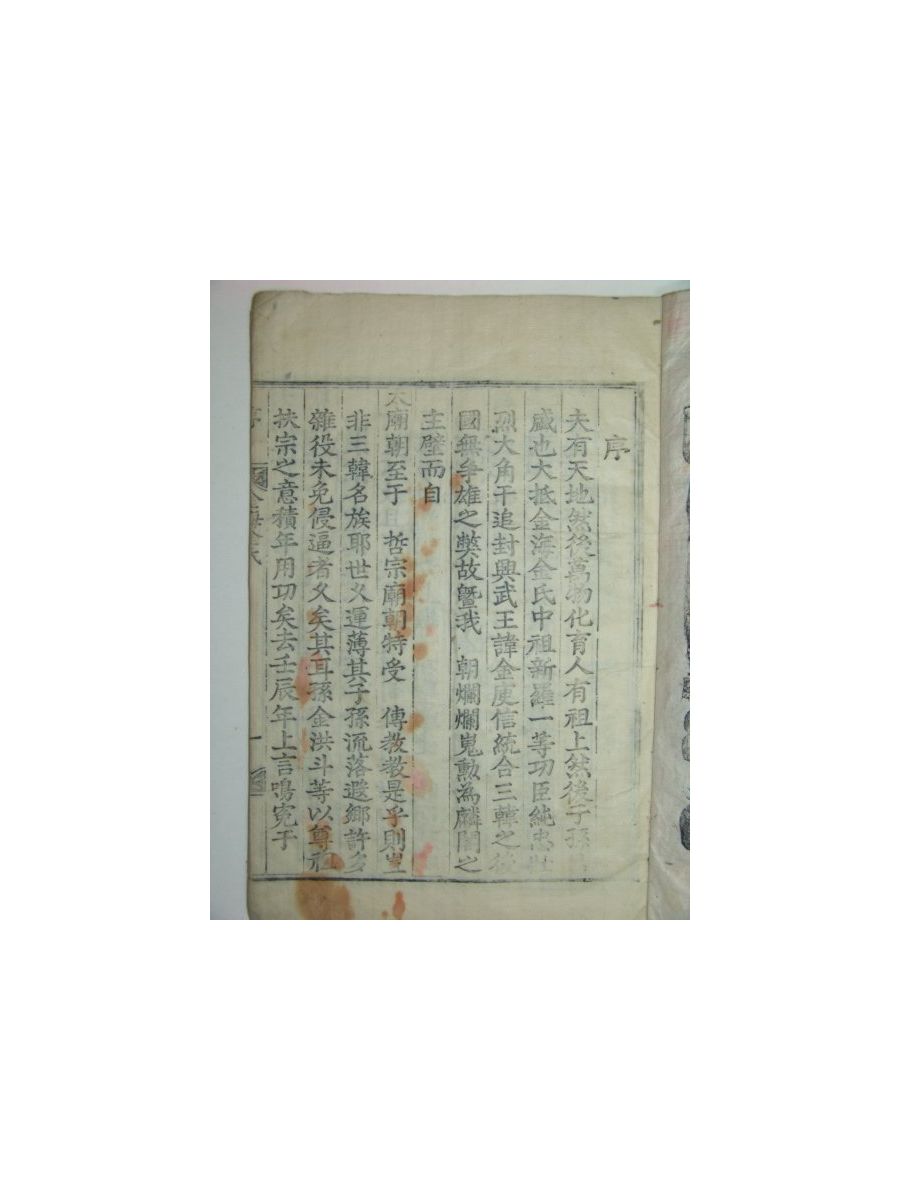 序
夫有天地然後萬物化育人有祖上然後子孫
盛也大抵金海金氏中祖新羅一等功臣純忠壯
烈大角干追封興武王諱金庾信統合三韓之後
國無爭雄之獘故曁我 朝爛爛嵬勳為麟閣之
主壁而自
太廟朝至于 哲宗廟朝特受 傳教教是乎則豈
非三韓名族耶世乆運薄其子孫流落遐鄉許多
雜役未免侵逼者乆矣其耳孫金洪斗等以尊祖
扶宗之意積年用功矣去壬辰年上言鳴寃于
序 金海金氏 一